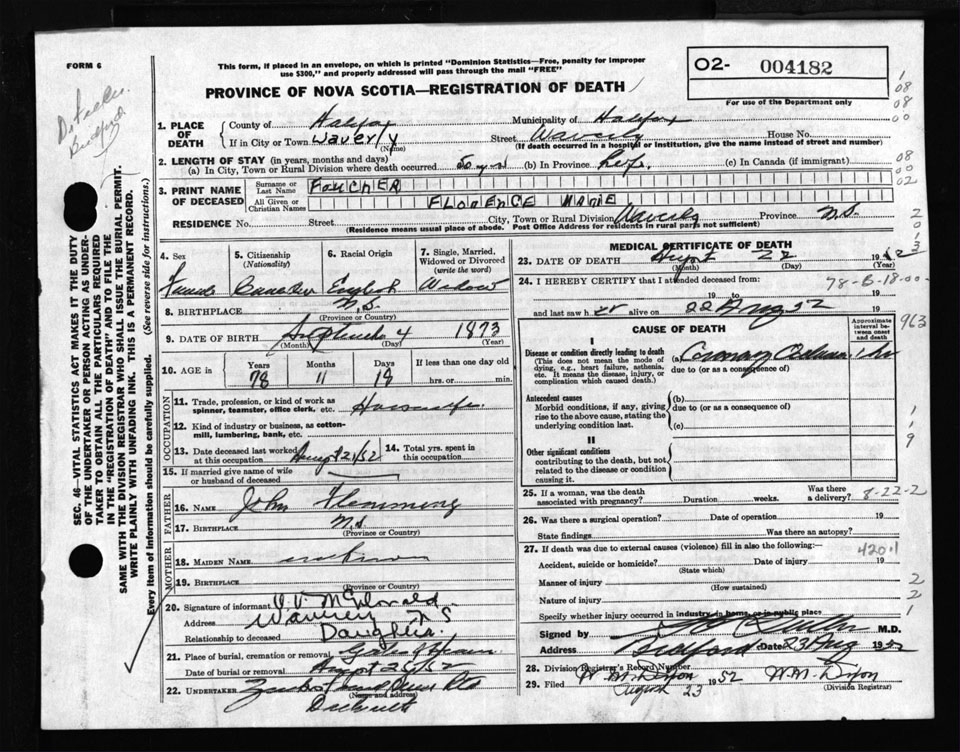 FORM 6
This form, if placed in an envelope, on which is printed "Dominion Statistics—Free, penalty for improper
use $300," and properly addressed will pass through the mail "FREE"
O2- 004182
For use of the Department only
PROVINCE OF NOVA SCOTIA—REGISTRATION OF DEATH
1. PLACE OF DEATH { County of Halifax Municipality of Halifax
If in City or Town Waverly Street Waverly House No.
(Name) (If death occurred in a hospital or institution, give the name instead of street and number)
2. LENGTH OF STAY (in years, months and days)
(a) In City, Town or Rural Division where death occurred 50 yrs (b) In Province Life. (c) In Canada (if immigrant)
3. PRINT NAME OF DECEASED { Surname or Last Name FOUCHER
All Given or Christian Names FLORENCE MARIE
RESIDENCE No. Street City, Town or Rural Division Waverly Province N.S.
(Residence means usual place of abode. Post Office Address for residents in rural parts not sufficient)
4. Sex Female
5. Citizenship (Nationality) Canadian
6. Racial Origin English
7. Single, Married, Widowed or Divorced (write the word) Widow
8. BIRTHPLACE N.S.
(Province or Country)
9. DATE OF BIRTH September 4 1873
(Month) (Day) (Year)
10. AGE in Years 78 Months 11 Days 18 If less than one day old hrs. or min.
OCCUPATION
11. Trade, profession, or kind of work as spinner, teamster, office clerk, etc. Housewife
12. Kind of industry or business, as cotton-mill, lumbering, bank, etc.
13. Date deceased last worked at this occupation Aug 21/52
14. Total yrs. spent in this occupation
15. If married give name of wife or husband of deceased
FATHER
16. NAME John Flemming
17. BIRTHPLACE N.S.
(Province or Country)
MOTHER
18. MAIDEN NAME unknown
19. BIRTHPLACE
(Province or Country)
20. Signature of informant
Address Waverley N S
Relationship to deceased Daughter
21. Place of burial, cremation or removal
Date of burial or removal August 25/52
22. UNDERTAKER
(Name and address)
MEDICAL CERTIFICATE OF DEATH
23. DATE OF DEATH August 22 1952
(Month) (Day) (Year)
24. I HEREBY CERTIFY that I attended deceased from:
19 to 19
and last saw her alive on 22 Aug 52 19
78-B-18-00
CAUSE OF DEATH
Approximate interval between onset and death
I
Disease or condition directly leading to death
(This does not mean the mode of dying, e.g., heart failure, asthenia, etc. It means the disease, injury, or complication which caused death.)
(a) Coronary
due to (or as a consequence of)
Antecedent causes
Morbid conditions, if any, giving rise to the above cause, stating the underlying condition last.
(b)
due to (or as a consequence of)
(c)
II
Other significant conditions
contributing to the death, but not related to the disease or condition causing it.
963
25. If a woman, was the death associated with pregnancy? Duration weeks. Was there a delivery? 8-22-2
26. Was there a surgical operation? Date of operation 19
State findings Was there an autopsy?
27. If death was due to external causes (violence) fill in also the following:— 420.1
Accident, suicide or homicide? Date of injury 19
(State which)
Manner of injury
(How sustained)
Nature of injury
Specify whether injury occurred in industry, in home or in public place
Signed by M.D.
Address Bedford Date 23 Aug 1952
28. Division Registrar's Record Number
29. Filed August 23 1952 W. M. Dixon
(Division Registrar)
SEC. 46—VITAL STATISTICS ACT MAKES IT THE DUTY
OF THE UNDERTAKER OR PERSON ACTING AS UNDER-
TAKER TO OBTAIN ALL THE PARTICULARS REQUIRED
IN THE "REGISTRATION OF DEATH" AND TO FILE THE
SAME WITH THE DIVISION REGISTRAR WHO SHALL ISSUE THE BURIAL PERMIT.
WRITE PLAINLY WITH UNFADING INK. THIS IS A PERMANENT RECORD.
Every item of Information should be carefully supplied. (See reverse side for instructions.)